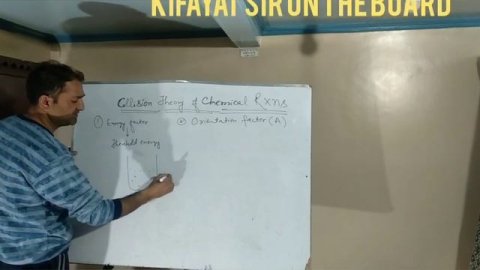 KIFAYAT SIR ON THE BOARD
Collision Theory of Chemical Rxns
① Energy factor
② Orientation factor (A)
Threshold energy